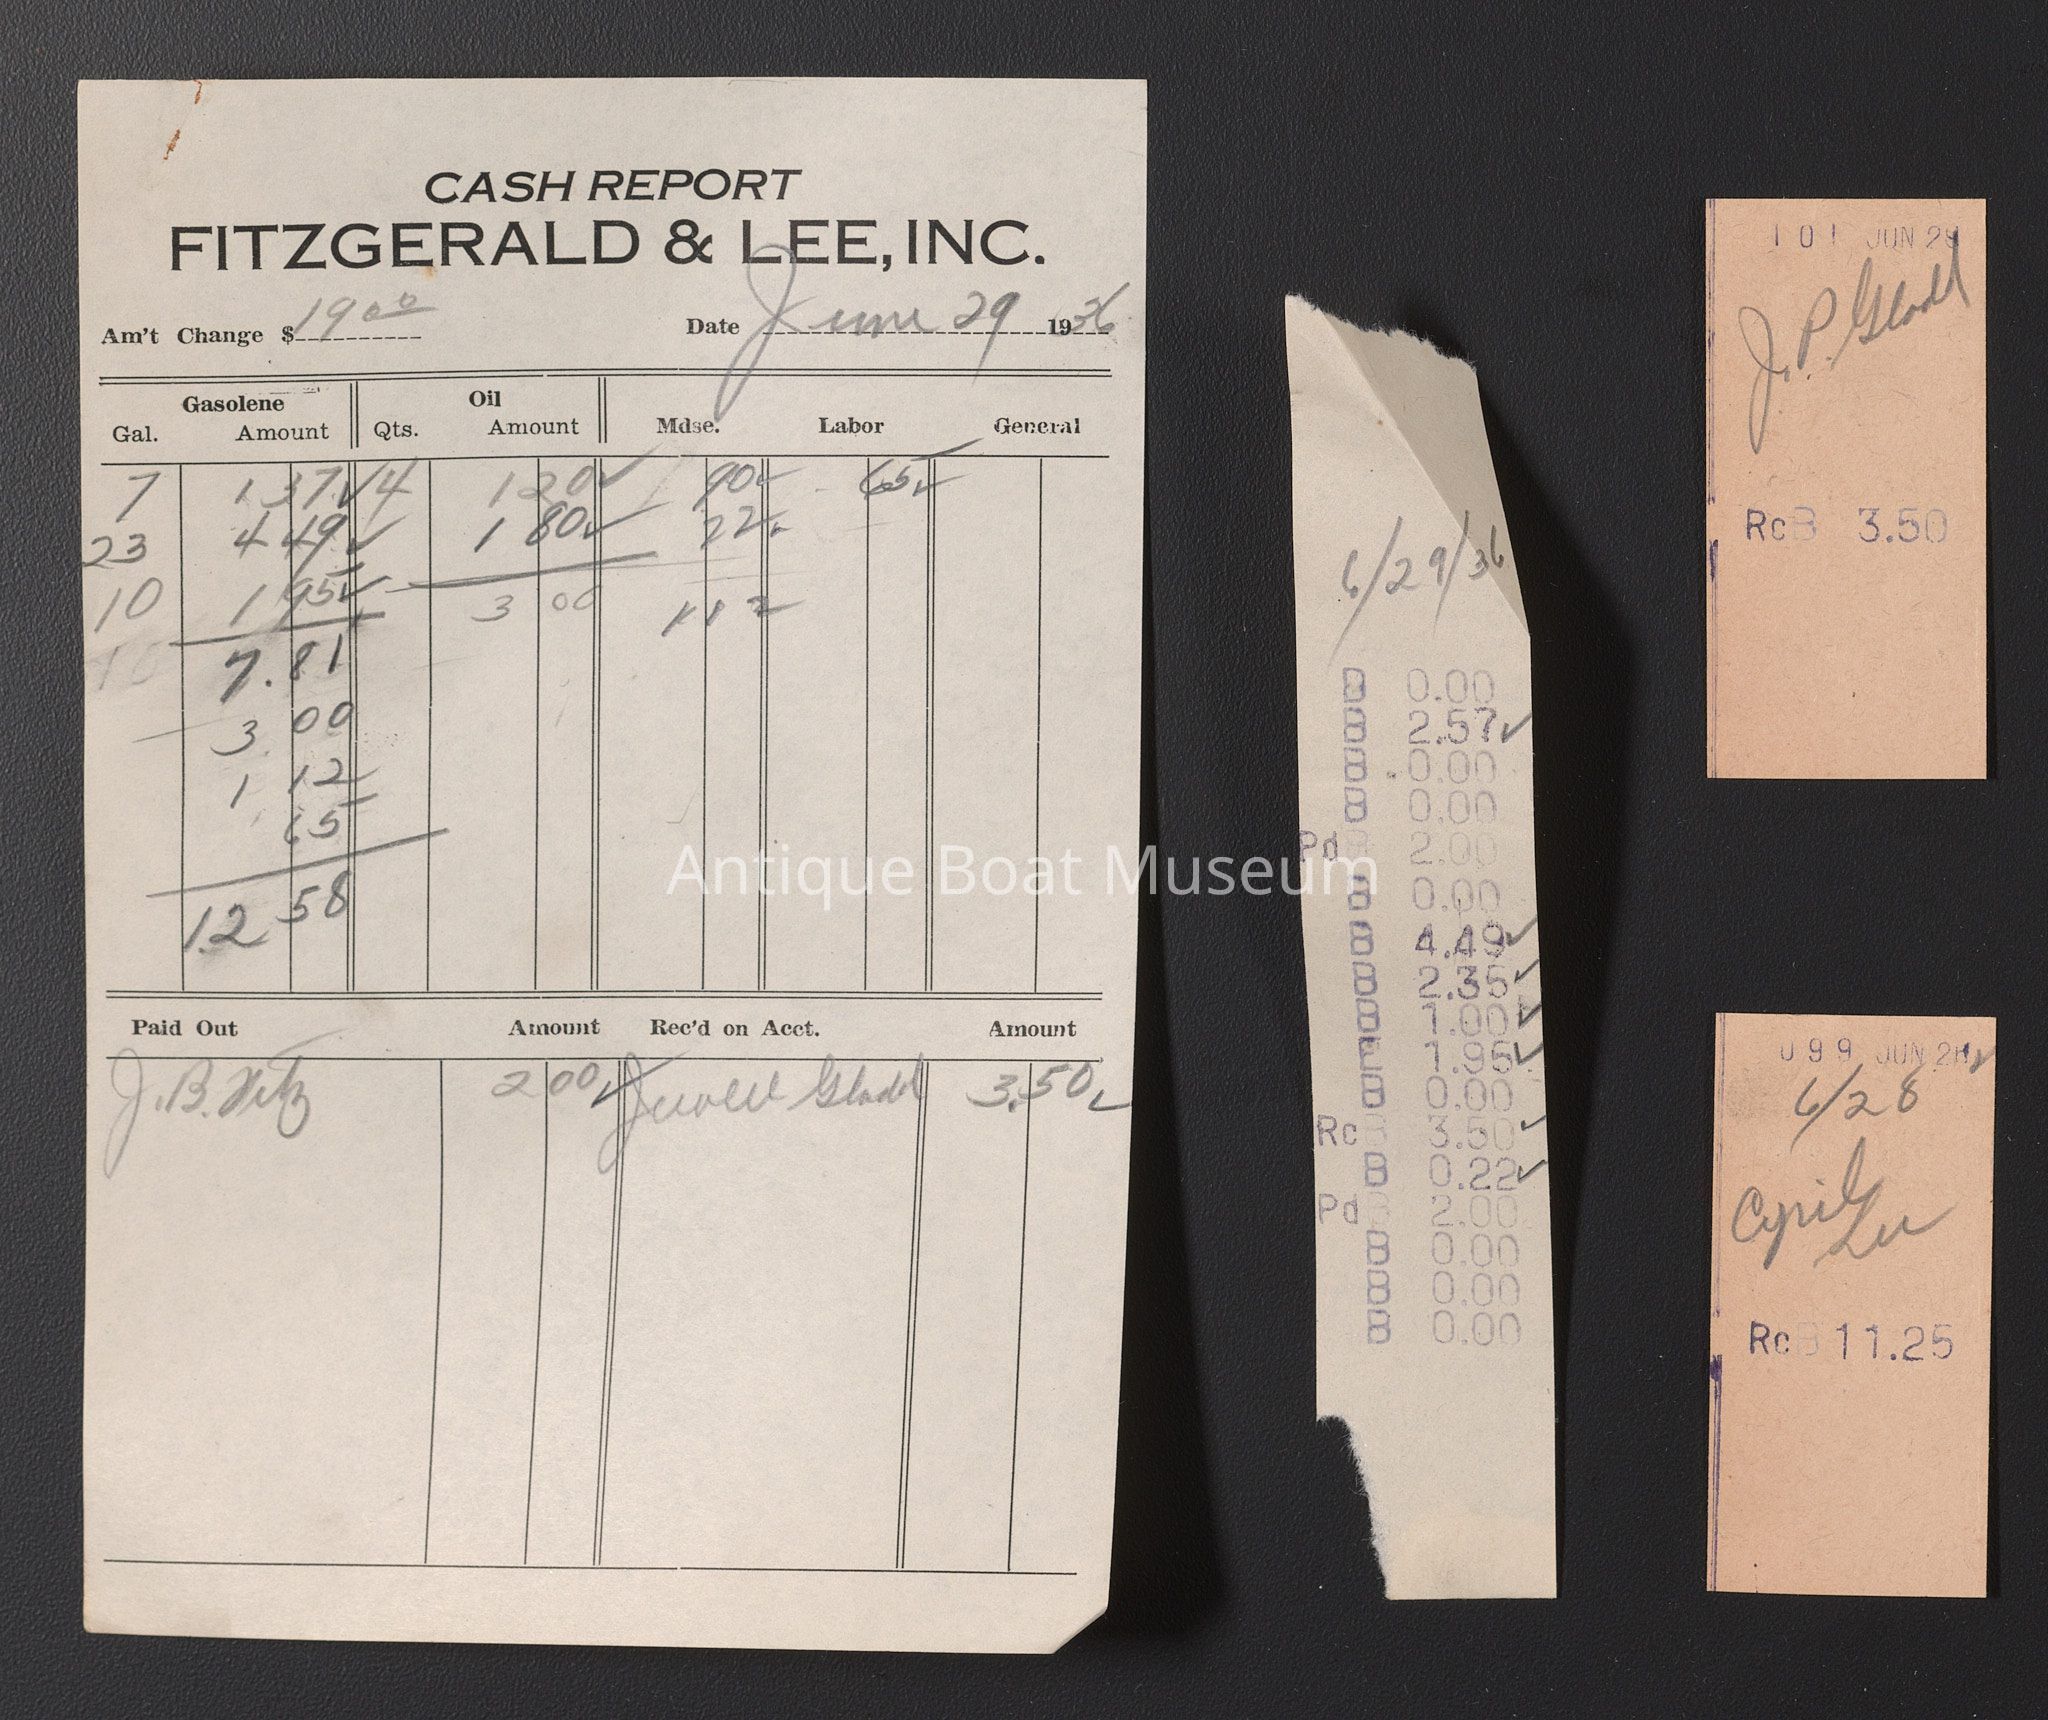 CASH REPORT
FITZGERALD & LEE, INC.
Am't Change $ 19 00 Date June 29 1936
Gasolene Oil
Gal. Amount Qts. Amount Mdse. Labor General
7 1 37 ✓ 4 1 20 ✓ 90 ✓ 65 ✓
23 4 49 ✓ 1 80 ✓ 22 ✓
10 1 95 ✓ 3 00 1 12
7.81
3 00
1 12
65
12 58
Paid Out Amount Rec'd on Acct. Amount
J. B. 2 00 ✓ Jewell Gladd 3.50 ✓
6/29/36
B 0.00
B 2.57 ✓
B 0.00
B 0.00
Pd B 2.00
B 0.00
B 4.49 ✓
B 2.35 ✓
B 1.00 ✓
B 1.95 ✓
B 0.00
Rc B 3.50 ✓
B 0.22 ✓
Pd B 2.00
B 0.00
B 0.00
B 0.00
101 JUN 29
J. P. Gladd
RcB 3.50
099 JUN 28 ✓
6/28
Cyril
Lee
RcB 11.25
Antique Boat Museum